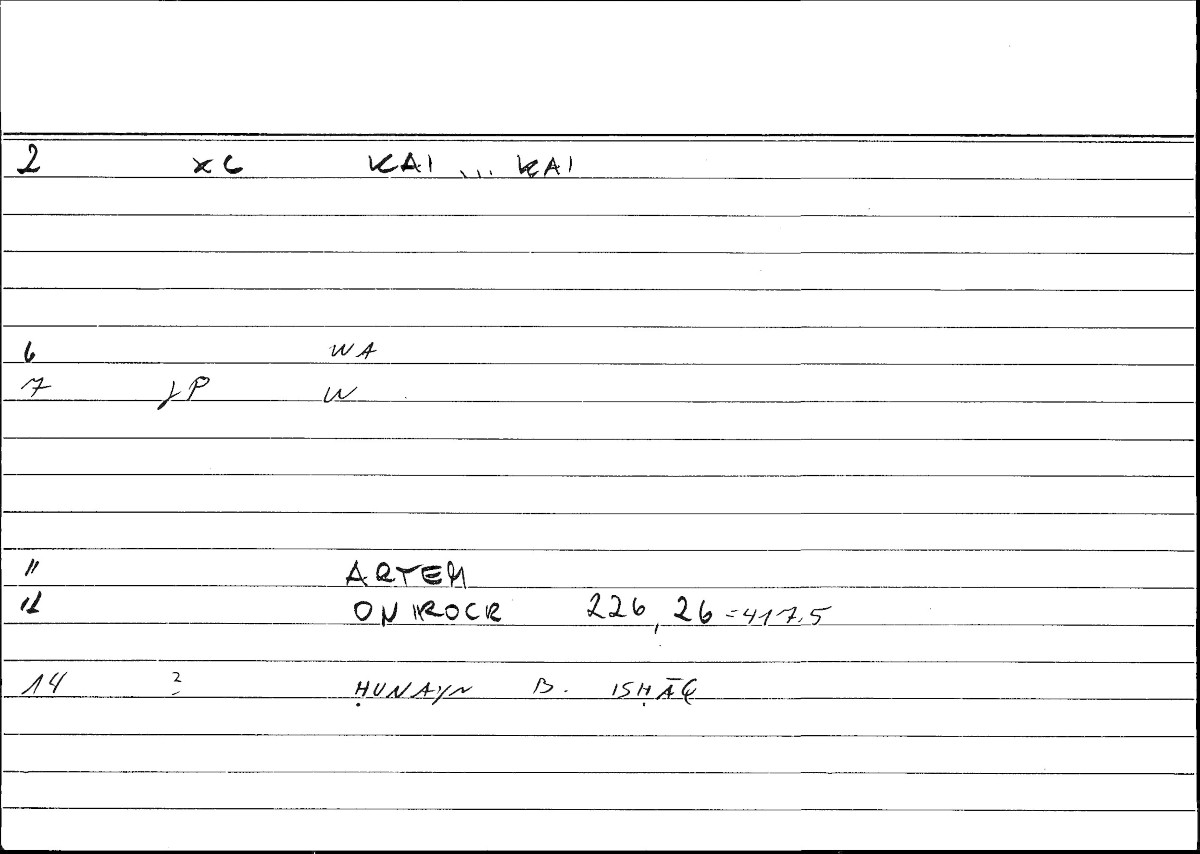 2 xc KAI ... KAI
6 WA
7 JP W
11 ARTEM
12 ONIROCR 226, 26 = 417.5
14 2 ḤUNAYN B. ISḤĀQ